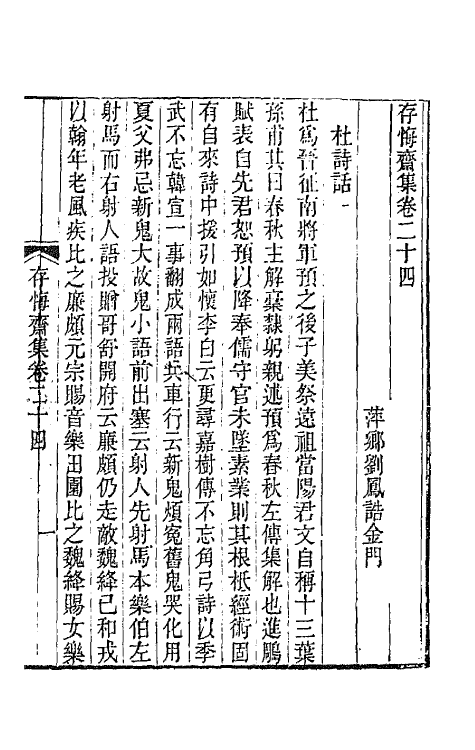 存悔齋集卷二十四
萍鄉劉鳳誥金門
杜詩話一
杜爲晉征南將軍預之後子美祭遠祖當陽君文自稱十三葉
孫甫其曰春秋主解稾隸躬親述預爲春秋左傳集解也進鵰
賦表自先君恕預以降奉儒守官未墜素業則其根柢經術固
有自來詩中援引如懷李白云更尋嘉樹傳不忘角弓詩以季
武不忘韓宣一事翻成兩語兵車行云新鬼煩冤舊鬼哭化用
夏父弗忌新鬼大故鬼小語前出塞云射人先射馬本樂伯左
射馬而右射人語投贈哥舒開府云廉頗仍走敵魏絳已和戎
以翰年老風疾比之廉頗元宗賜音樂田園比之魏絳賜女樂
存悔齋集卷二十四
一